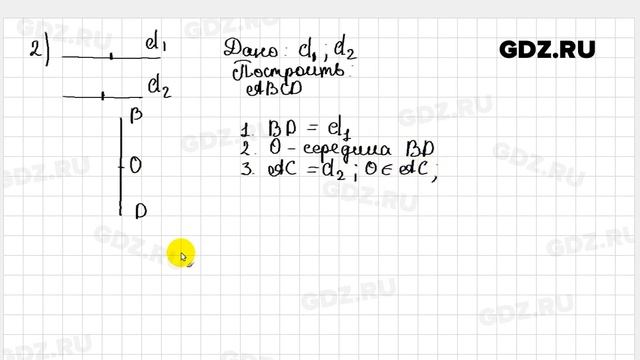 2) d₁
d₂
B
O
D
Дано: d₁; d₂
Построить:
ABCD
1. BD = d₁
2. O - середина BD
3. AC = d₂; O ∈ AC;
GDZ.RU
GDZ.RU
GDZ.RU
GDZ.RU
GDZ.RU
GDZ.RU
GDZ.RU
GDZ.RU
GDZ.RU